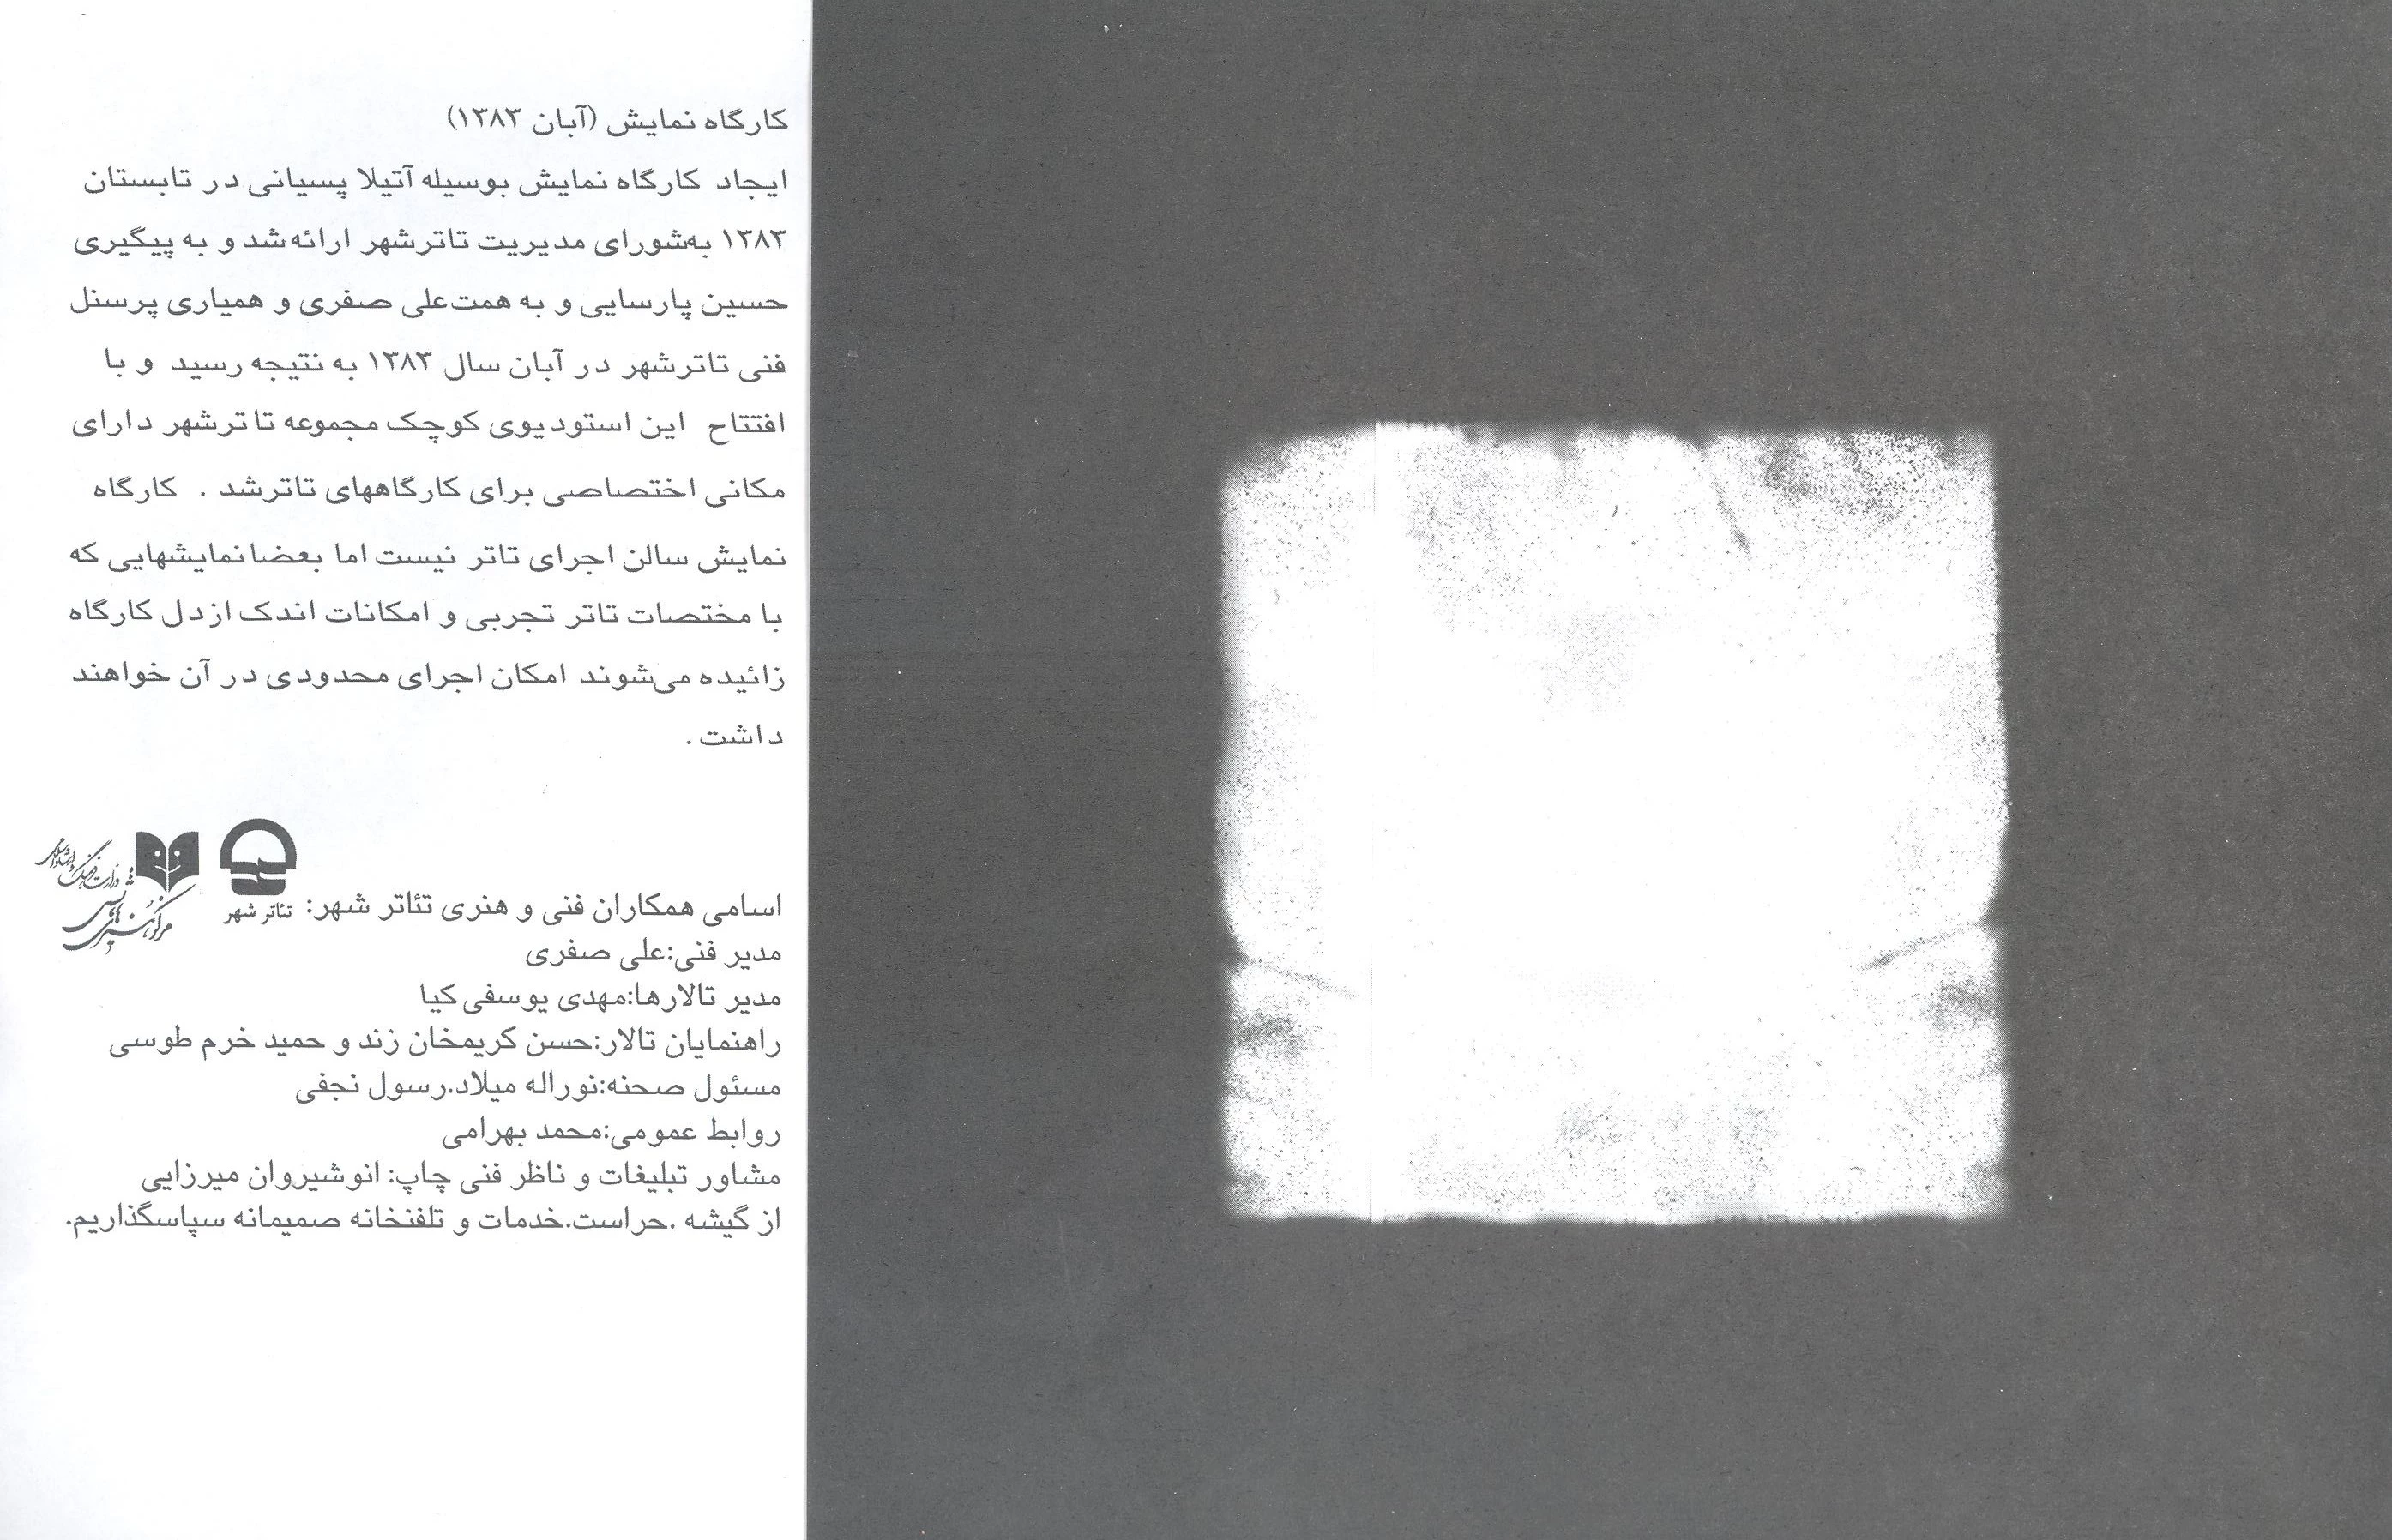 کارگاه نمایش (آبان ۱۳۸۳)
ایجاد کارگاه نمایش بوسیله آتیلا پسیانی در تابستان
۱۳۸۳ به‌شورای مدیریت تاترشهر ارائه‌شد و به پیگیری
حسین پارسایی و به همت‌علی صفری و همیاری پرسنل
فنی تاترشهر در آبان سال ۱۳۸۳ به نتیجه رسید و با
افتتاح این استودیوی کوچک مجموعه تاترشهر دارای
مکانی اختصاصی برای کارگاههای تاترشد . کارگاه
نمایش سالن اجرای تاتر نیست اما بعضا نمایشهایی که
با مختصات تاتر تجربی و امکانات اندک از دل کارگاه
زائیده می‌شوند امکان اجرای محدودی در آن خواهند
داشت .
وزارت فرهنگ و ارشاد اسلامی
مرکز هنرهای نمایشی
تئاتر شهر
اسامی همکاران فنی و هنری تئاتر شهر:
مدیر فنی:علی صفری
مدیر تالارها:مهدی یوسفی کیا
راهنمایان تالار:حسن کریمخان زند و حمید خرم طوسی
مسئول صحنه:نوراله میلاد.رسول نجفی
روابط عمومی:محمد بهرامی
مشاور تبلیغات و ناظر فنی چاپ: انوشیروان میرزایی
از گیشه .حراست.خدمات و تلفنخانه صمیمانه سپاسگذاریم.